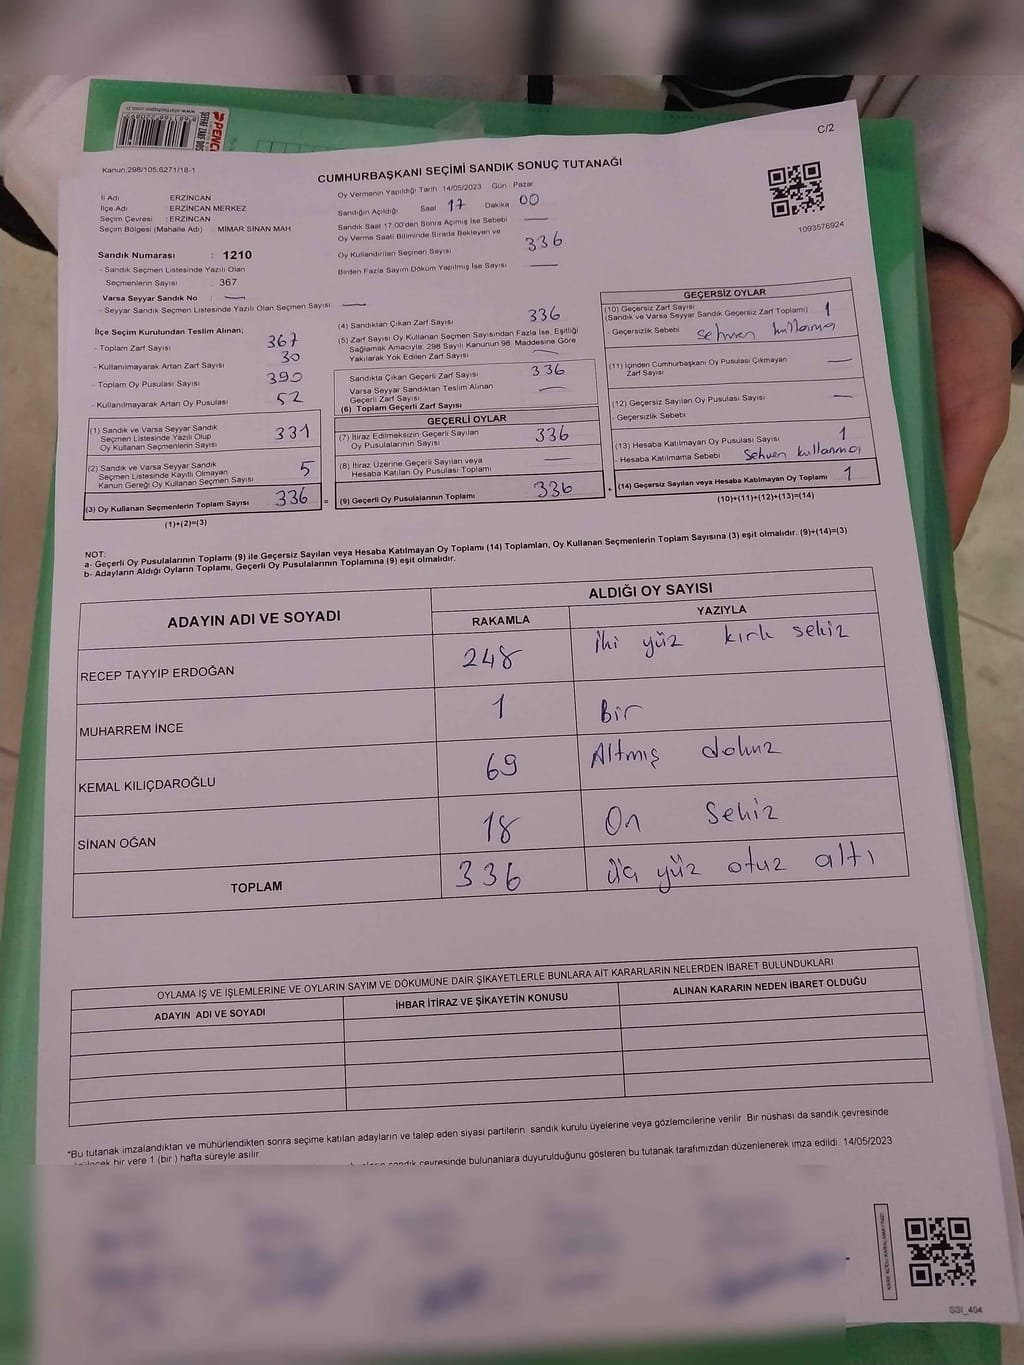 C/2
Kanun:298/105,6271/18-1
CUMHURBAŞKANI SEÇİMİ SANDIK SONUÇ TUTANAĞI
İl Adı ERZİNCAN
İlçe Adı ERZİNCAN MERKEZ
Seçim Çevresi : ERZİNCAN
Seçim Bölgesi (Mahalle Adı) : MİMAR SİNAN MAH
Sandık Numarası : 1210
- Sandık Seçmen Listesinde Yazılı Olan
Seçmenlerin Sayısı : 367
Varsa Seyyar Sandık No : —
- Seyyar Sandık Seçmen Listesinde Yazılı Olan Seçmen Sayısı —
Oy Vermenin Yapıldığı Tarih 14/05/2023 Gün Pazar
Sandığın Açıldığı Saat 17 Dakika 00
Sandık Saat 17:00'den Sonra Açımış İse Sebebi —
Oy Verme Saati Bitiminde Sırada Bekleyen ve
Oy Kullandırılan Seçmen Sayısı 336
Birden Fazla Sayım Döküm Yapılmış İse Sayısı —
1093576924
İlçe Seçim Kurulundan Teslim Alınan;
- Toplam Zarf Sayısı 367
- Kullanılmayarak Artan Zarf Sayısı 30
- Toplam Oy Pusulası Sayısı 390
- Kullanılmayarak Artan Oy Pusulası 52
(1) Sandık ve Varsa Seyyar Sandık
Seçmen Listesinde Yazılı Olup
Oy Kullanan Seçmenlerin Sayısı 331
(2) Sandık ve Varsa Seyyar Sandık
Seçmen Listesinde Kayıtlı Olmayan
Kanun Gereği Oy Kullanan Seçmen Sayısı 5
(3) Oy Kullanan Seçmenlerin Toplam Sayısı 336 =
(1)+(2)=(3)
(4) Sandıktan Çıkan Zarf Sayısı 336
(5) Zarf Sayısı Oy Kullanan Seçmen Sayısından Fazla İse, Eşitliği
Sağlamak Amacıyla; 298 Sayılı Kanunun 98. Maddesine Göre
Yakılarak Yok Edilen Zarf Sayısı —
Sandıkta Çıkan Geçerli Zarf Sayısı 336
Varsa Seyyar Sandıktan Teslim Alınan
Geçerli Zarf Sayısı —
(6) Toplam Geçerli Zarf Sayısı
GEÇERLİ OYLAR
(7) İtiraz Edilmeksizin Geçerli Sayılan
Oy Pusulalarının Sayısı 336
(8) İtiraz Üzerine Geçerli Sayılan veya
Hesaba Katılan Oy Pusulası Toplamı —
(9) Geçerli Oy Pusulalarının Toplamı 336 +
GEÇERSİZ OYLAR
(10) Geçersiz Zarf Sayısı
(Sandık ve Varsa Seyyar Sandık Geçersiz Zarf Toplamı) 1
- Geçersizlik Sebebi sehven kullanma
(11) İçinden Cumhurbaşkanı Oy Pusulası Çıkmayan
Zarf Sayısı —
(12) Geçersiz Sayılan Oy Pusulası Sayısı —
- Geçersizlik Sebebi
(13) Hesaba Katılmayan Oy Pusulası Sayısı 1
- Hesaba Katılmama Sebebi Sehven kullanma
(14) Geçersiz Sayılan veya Hesaba Katılmayan Oy Toplamı 1
(10)+(11)+(12)+(13)=(14)
NOT:
a- Geçerli Oy Pusulalarının Toplamı (9) ile Geçersiz Sayılan veya Hesaba Katılmayan Oy Toplamı (14) Toplamları, Oy Kullanan Seçmenlerin Toplam Sayısına (3) eşit olmalıdır. (9)+(14)=(3)
b- Adayların Aldığı Oyların Toplamı, Geçerli Oy Pusulalarının Toplamına (9) eşit olmalıdır.
ADAYIN ADI VE SOYADI ALDIĞI OY SAYISI
RAKAMLA YAZIYLA
RECEP TAYYİP ERDOĞAN 248 iki yüz kırk sekiz
MUHARREM İNCE 1 Bir
KEMAL KILIÇDAROĞLU 69 Altmış dokuz
SİNAN OĞAN 18 On Sekiz
TOPLAM 336 yüz otuz altı
OYLAMA İŞ VE İŞLEMLERİNE VE OYLARIN SAYIM VE DÖKÜMÜNE DAİR ŞİKAYETLERLE BUNLARA AİT KARARLARIN NELERDEN İBARET BULUNDUKLARI
ADAYIN ADI VE SOYADI İHBAR İTİRAZ VE ŞİKAYETİN KONUSU ALINAN KARARIN NEDEN İBARET OLDUĞU
*Bu tutanak imzalandıktan ve mühürlendikten sonra seçime katılan adayların ve talep eden siyasi partilerin sandık kurulu üyelerine veya gözlemcilerine verilir. Bir nüshası da sandık çevresinde
bir yere 1 (bir) hafta süreyle asılır.
sandık çevresinde bulunanlara duyurulduğunu gösteren bu tutanak tarafımızdan düzenlenerek imza edildi. 14/05/2023
SSI_404